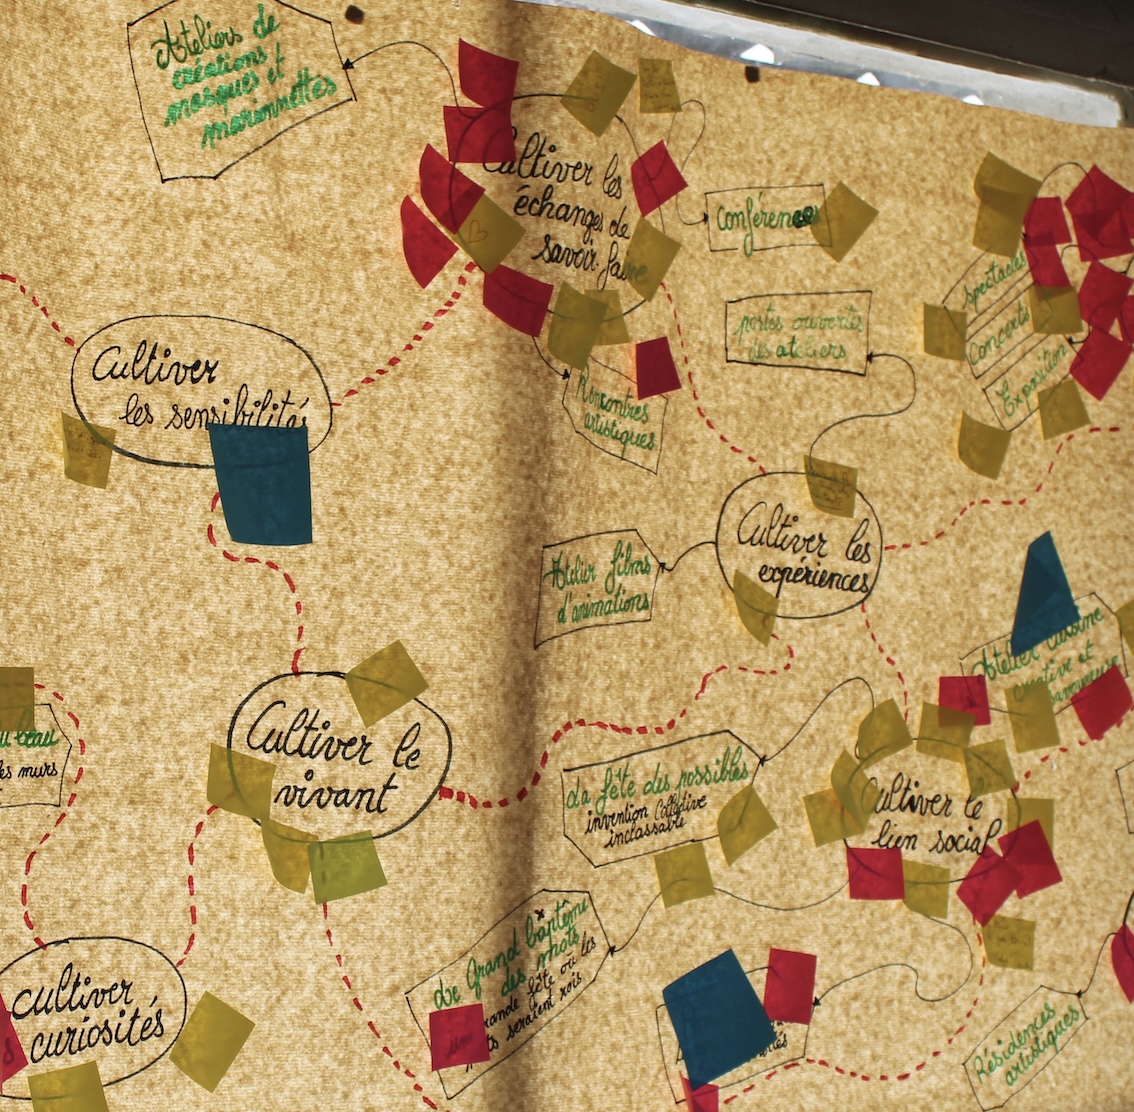 Ateliers de
créations
masques et
marionnettes
Cultiver les
échanges de
savoir-faire
Conférences
portes ouvertes
des ateliers
spectacles
Concerts
Exposition
Cultiver
les sensibilités
Rencontres
artistiques
Cultiver les
expériences
Atelier films
d'animations
Atelier cuisine
créative et
Cultiver le
vivant
u beau
les murs
La fête des possibles
invention collective
inclassable
Cultiver le
lien social
Le Grand baptême
des mots
rande fête où les
ts seraient rois
cultiver
curiosités
Résidences
artistiques